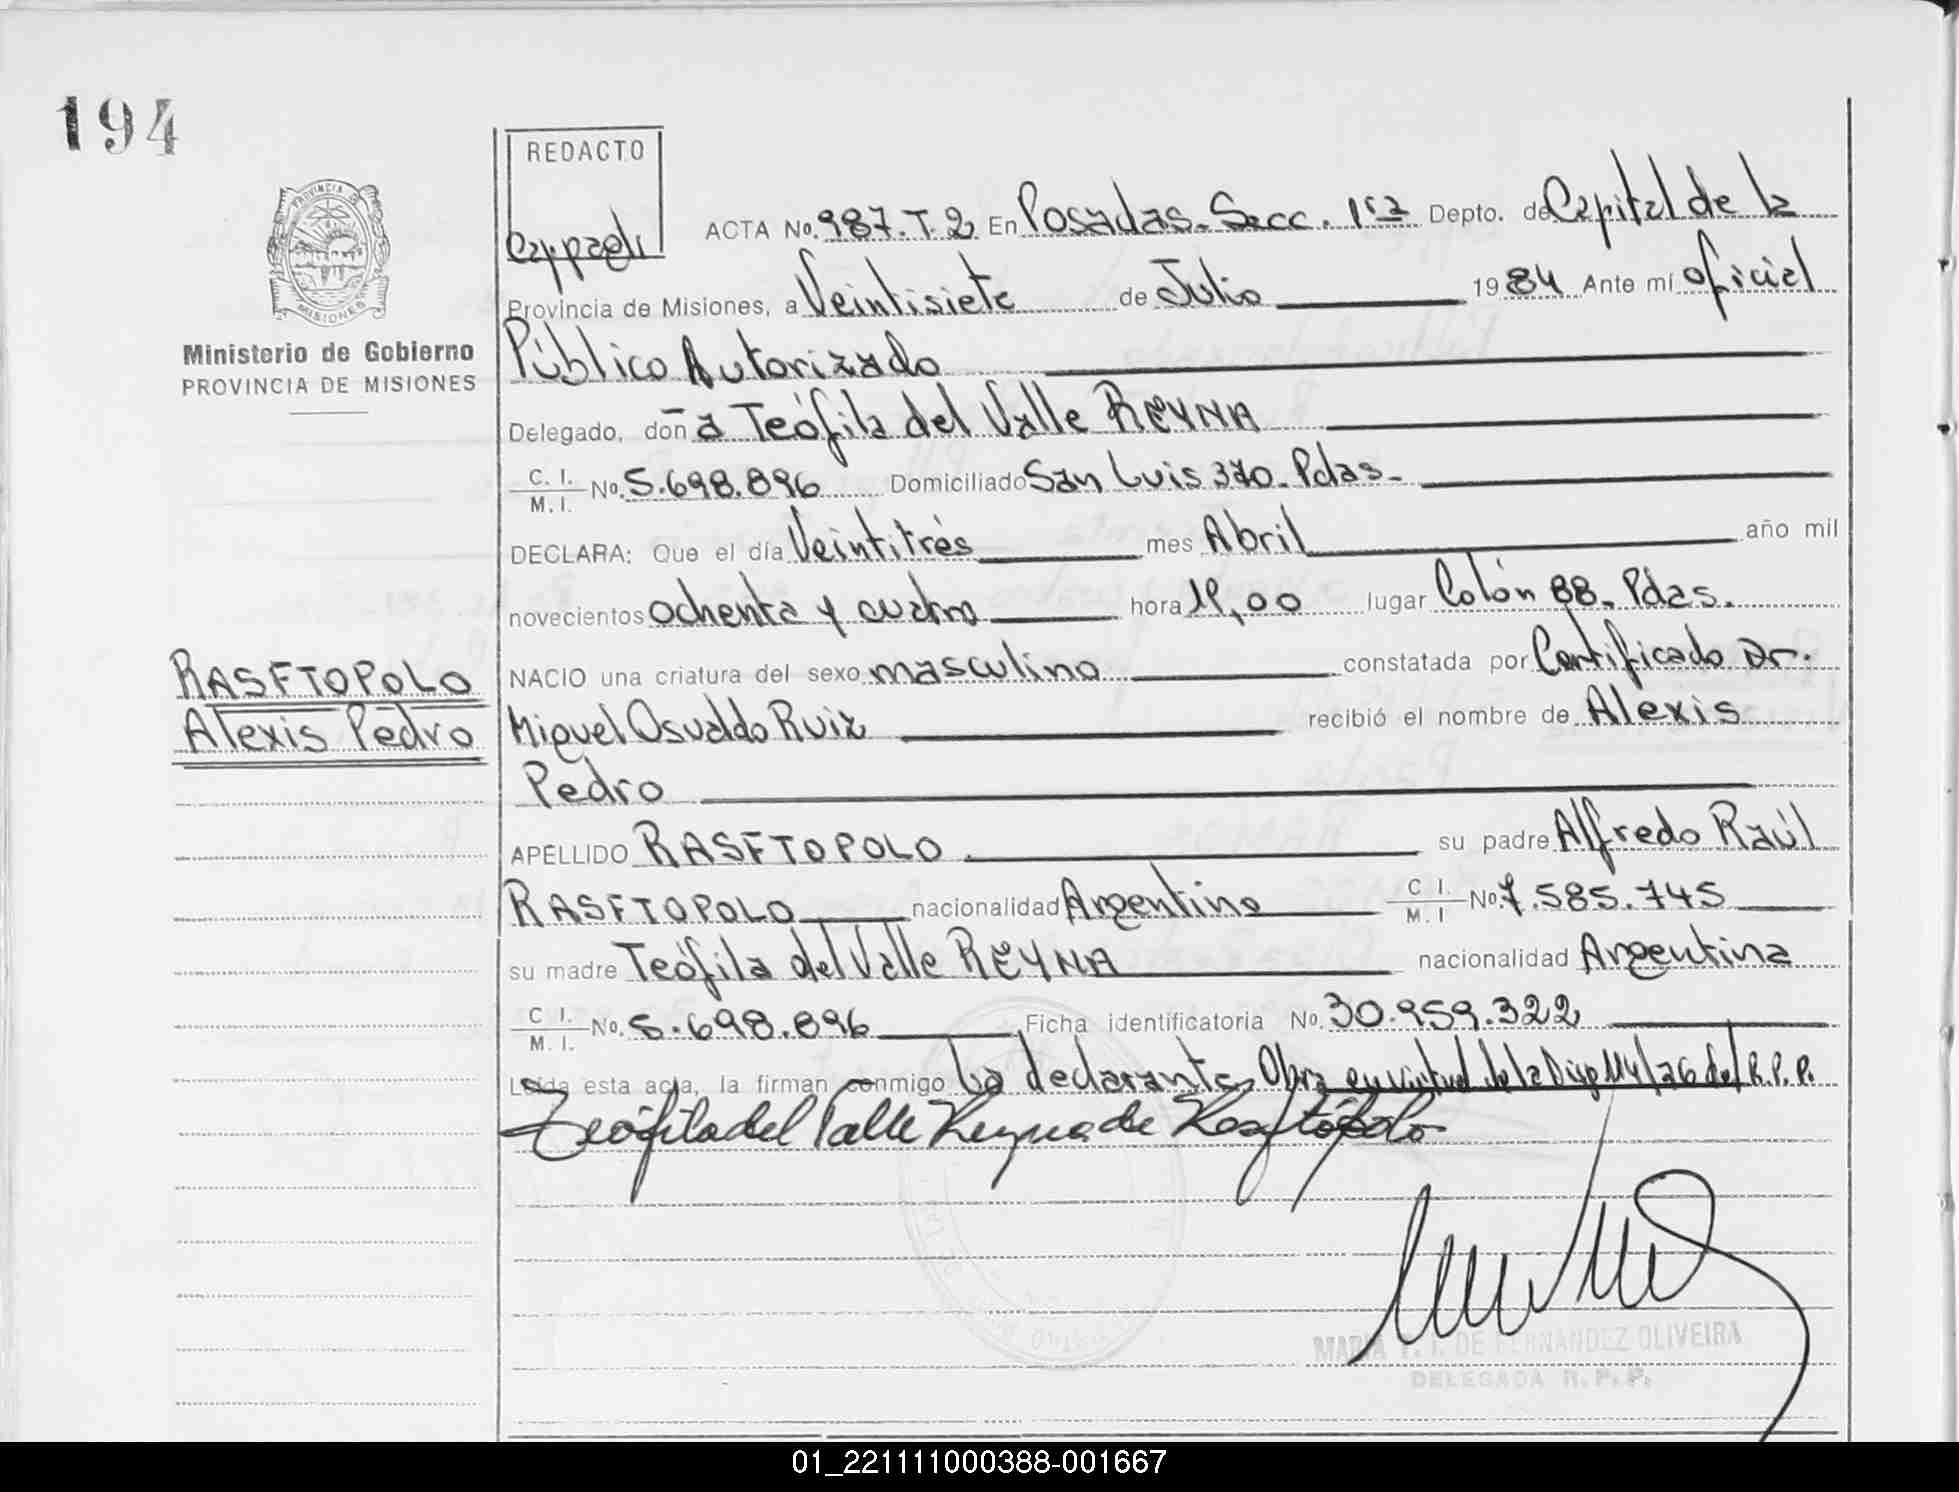 194
REDACTO
ACTA No. 987. T. 2 En Posadas. Secc. 1ra Depto. de Capital de la
Provincia de Misiones, a Veintisiete de Julio 1984 Ante mí Oficial
Ministerio de Gobierno
PROVINCIA DE MISIONES
Público Autorizado
Delegado, doña Teófila del Valle REYNA
C. I.
M. I. No. 5.698.896 Domiciliado San Luis 370. Pdas.
DECLARA: Que el día Veintitrés mes Abril año mil
novecientos ochenta y cuatro hora 19,00 lugar Colón 88. Pdas.
NACIO una criatura del sexo masculino constatada por Certificado Dr.
RASFTOPOLO
Alexis Pedro
Miguel Osvaldo Ruiz recibió el nombre de Alexis
Pedro
APELLIDO RASFTOPOLO su padre Alfredo Raúl
RASFTOPOLO nacionalidad Argentino C I. M. I No 7.585.745
su madre Teófila del Valle REYNA nacionalidad Argentina
C I.
M. I. No. 5.698.896 Ficha identificatoria No. 30.959.322
Leída esta acta, la firman conmigo La declarante, Obra en virtud de la Disp. de R.P.P.
Teófila del Valle Reyna de Rasftópolo
MARIA DE FERNANDEZ OLIVEIRA
DELEGADA R. P. P.
01_221111000388-001667